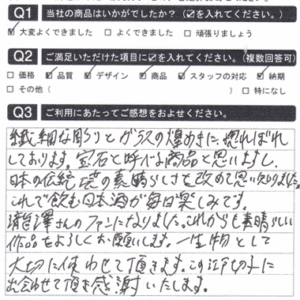 Q1 当社の商品はいかがでしたか？（☑を入れてください。）
☑大変よくできました □よくできました □頑張りましょう
Q2 ご満足いただけた項目に☑を入れてください。（複数回答可）
□価格 ☑品質 ☑デザイン ☑商品 ☑スタッフの対応 ☑納期
□その他（ ）□特になし
Q3 ご利用にあたってご感想をおよせください。
繊細な彫りとガラスの煌めきに、惚ればれ
しております。宝石と呼べる商品と思いますし、
日本の伝統 の素晴らしさを改めて思い知りました。
これで飲む日本酒が毎日楽しみです。
さんのファンになりました。これからも素晴らしい
作品をよろしくお願いします。一生物として
大切に使わせて頂きます。この江戸切子に
出会わせて頂き感謝いたします。